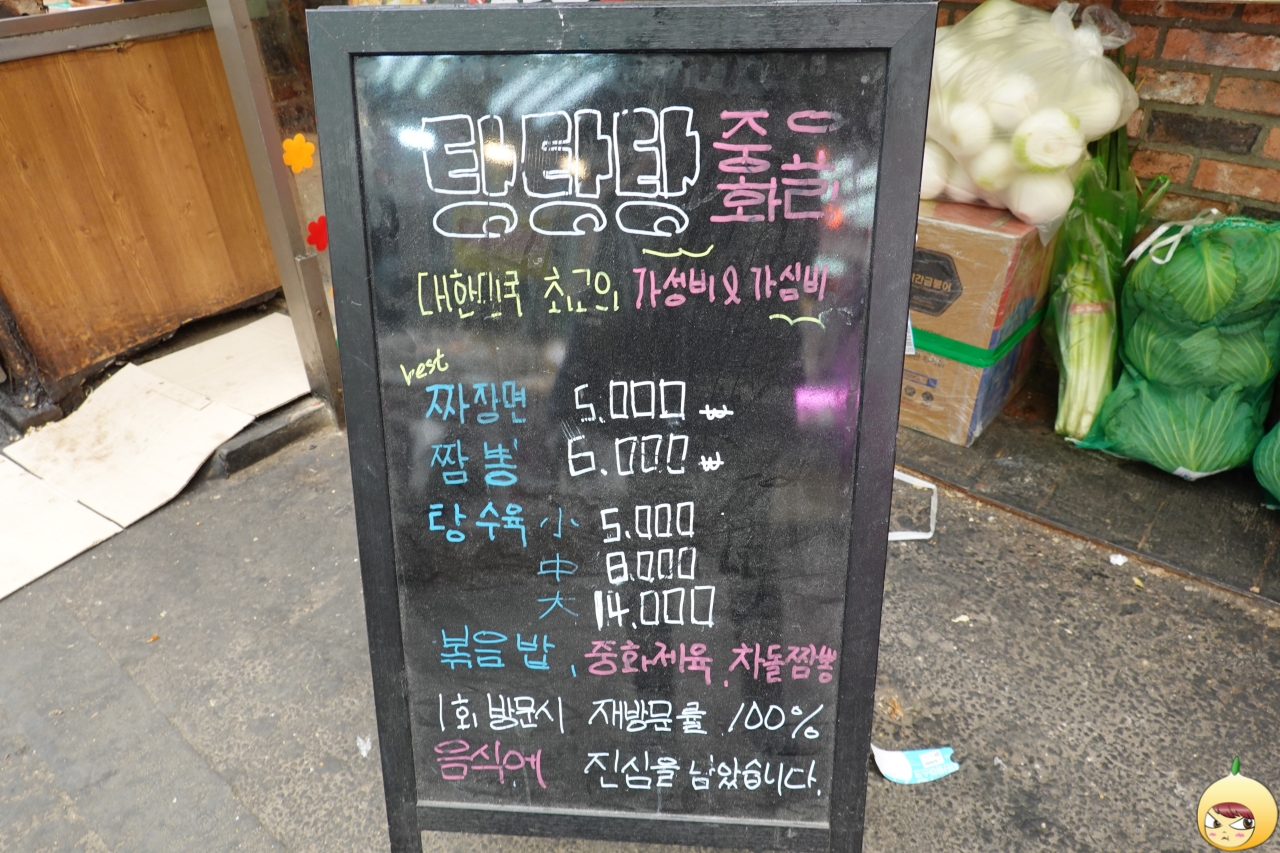 팅탕탕 중화요리
대한민국 초고의 가성비 & 가심비
best
짜장면 5.000 ₩
짬뽕 6.000 ₩
탕수육 小 5.000
中 8.000
大 14.000
볶음밥, 중화제육, 차돌짬뽕
1회 방문시 재방문률 100%
음식에 진심을 남았습니다.